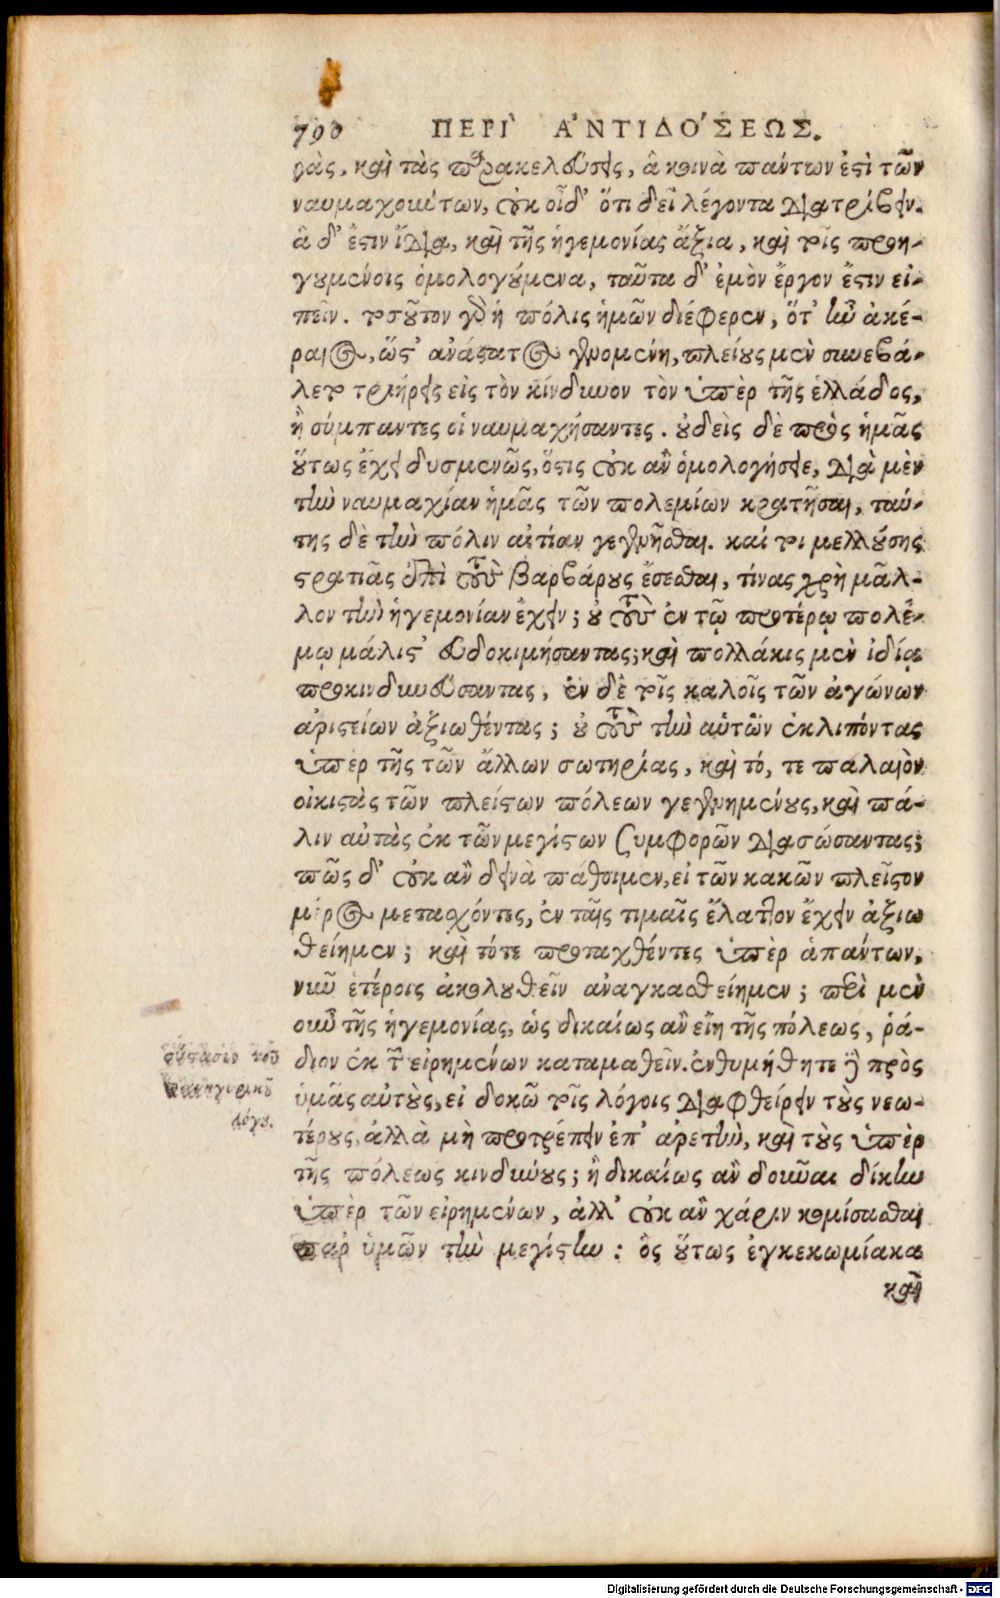 790 ΠΕΡΙ` Α'ΝΤΙΔΟ'ΣΕΩΣ.
ρὰς, καὶ τὰς παρακελεύσεις, ἃ κοινὰ πάντων ἐστὶ τῶν
ναυμαχούντων, οὐκ οἶδ' ὅτι δεῖ λέγοντα διατρίβειν.
ἃ δ' ἔστιν ἴδια, καὶ τῆς ἡγεμονίας ἄξια, καὶ τοῖς προη-
γουμένοις ὁμολογούμενα, ταῦτα δ' ἐμὸν ἔργον ἔστιν εἰ-
πεῖν. τοσοῦτον γὰρ ἡ πόλις ἡμῶν διέφερεν, ὅτ' ἦν ἀκέ-
ραιος, ὥστ' ἀνάστατος γενομένη, πλείους μὲν συνεβά-
λετο τριήρεις εἰς τὸν κίνδυνον τὸν ὑπὲρ τῆς ἑλλάδος,
ἢ σύμπαντες οἱ ναυμαχήσαντες. οὐδεὶς δὲ πρὸς ἡμᾶς
οὕτως ἔχει δυσμενῶς, ὅστις οὐκ ἂν ὁμολογήσειε, διὰ μὲν
τὴν ναυμαχίαν ἡμᾶς τῶν πολεμίων κρατῆσαι, ταύ-
της δὲ τὴν πόλιν αἰτίαν γεγενῆσθαι. καί τοι μελλούσης
στρατιᾶς ἐπὶ τοὺς βαρβάρους ἔσεσθαι, τίνας χρὴ μᾶλ-
λον τὴν ἡγεμονίαν ἔχειν; οὐ τοὺς ἐν τῷ προτέρῳ πολέ-
μῳ μάλιστ' εὐδοκιμήσαντας; καὶ πολλάκις μὲν ἰδίᾳ
προκινδυνεύσαντας, ἐν δὲ τοῖς καλοῖς τῶν ἀγώνων
ἀριστείων ἀξιωθέντας; οὐ τοὺς τὴν αὑτῶν ἐκλιπόντας
ὑπὲρ τῆς τῶν ἄλλων σωτηρίας, καὶ τό, τε παλαιὸν
οἰκιστὰς τῶν πλείστων πόλεων γεγενημένους, καὶ πά-
λιν αὐτὰς ἐκ τῶν μεγίστων συμφορῶν διασώσαντας;
πῶς δ' οὐκ ἂν δεινὰ πάθοιμεν, εἰ τῶν κακῶν πλεῖστον
μέρος μετασχόντες, ἐν ταῖς τιμαῖς ἔλαττον ἔχειν ἀξιω
θείημεν; καὶ τότε προταχθέντες ὑπὲρ ἁπάντων,
νῦν ἑτέροις ἀκολουθεῖν ἀναγκασθείημεν; περὶ μὲν
οὖν τῆς ἡγεμονίας, ὡς δικαίως ἂν εἴη τῆς πόλεως, ῥά-
διον ἐκ τῶν εἰρημένων καταμαθεῖν. ἐνθυμήθητε δὲ πρὸς
σύστασις τοῦ
πανηγυρικοῦ
λόγου.
ὑμᾶς αὐτοὺς, εἰ δοκῶ τοῖς λόγοις διαφθείρειν τοὺς νεω-
τέρους, ἀλλὰ μὴ προτρέπειν ἐπ' ἀρετὴν, καὶ τοὺς ὑπὲρ
τῆς πόλεως κινδύνους; ἢ δικαίως ἂν δοῦναι δίκην
ὑπὲρ τῶν εἰρημένων, ἀλλ' οὐκ ἂν χάριν κομίσασθαι
παρ' ὑμῶν τὴν μεγίστην: ὃς οὕτως ἐγκεκωμίακα
καὶ
Digitalisierung gefördert durch die Deutsche Forschungsgemeinschaft - DFG